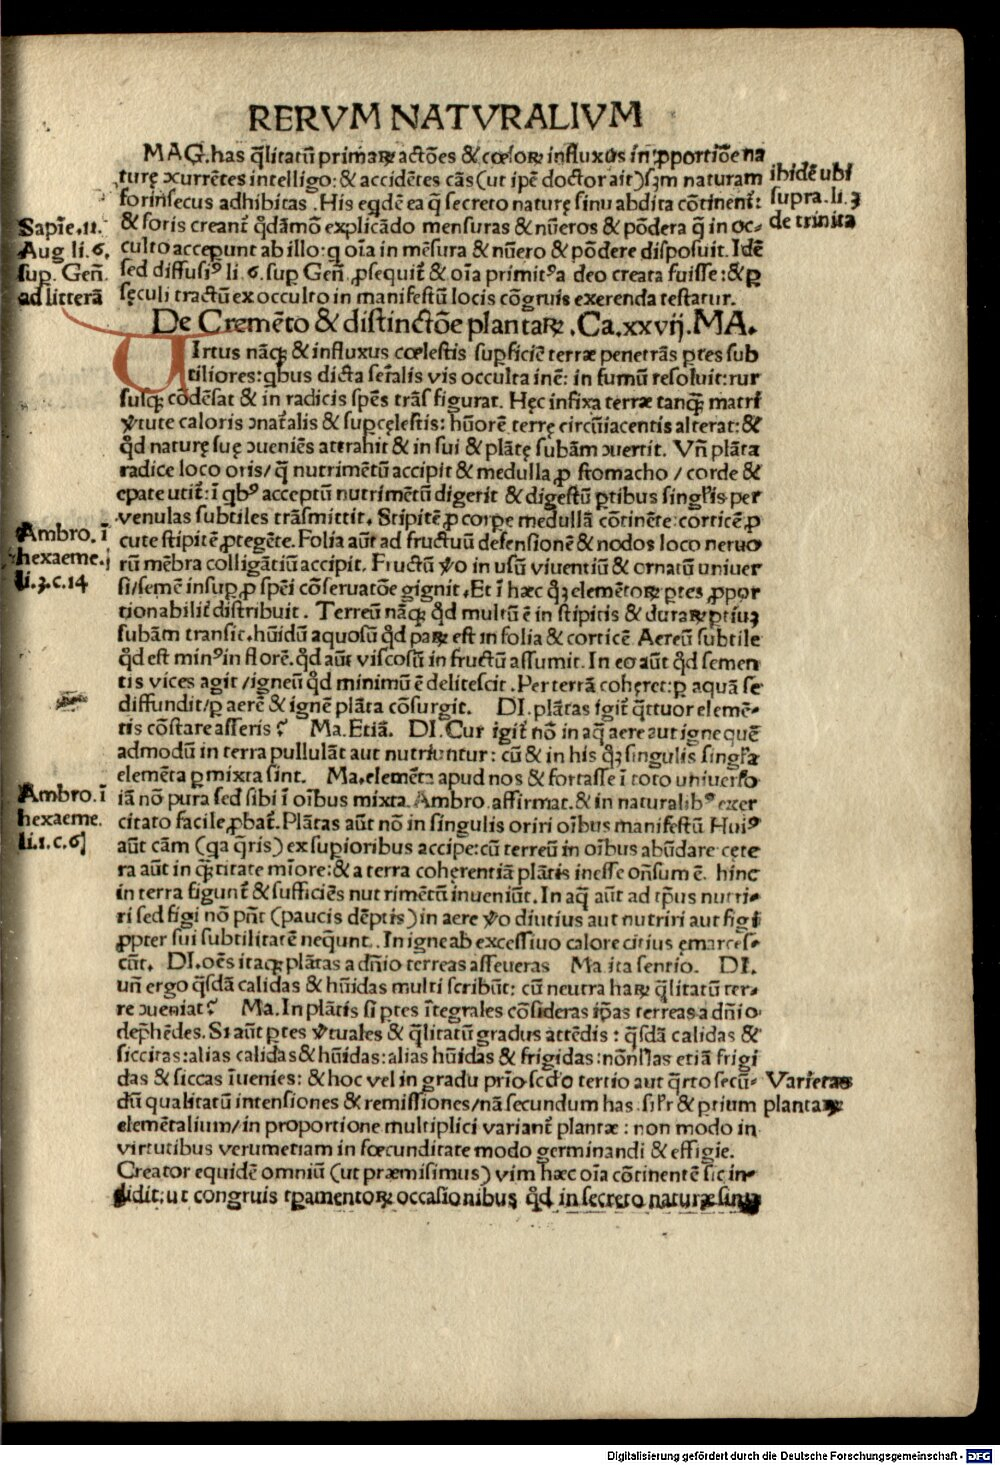 RERVM NATVRALIVM
MAG. has q̃litatũ primaꝝ actões & cœloꝝ influxus in ꝓportiõe na
turę ↄcurrẽtes intelligo: & accidẽtes cãs (ut ipẽ doctor ait) sꝫm naturam
forinsecus adhibitas. His eqdẽ ea q̃ secreto naturę sinu abdita cõtinent̃:
& foris creant̃ qdãmõ explicãdo mensuras & nũeros & põdera q̃ in oc-
culto acceperunt ab illo: q oĩa in mẽsura & nũero & põdere disposuit. Idẽ
sed diffusiꝰ li. 6. sup Geñ. ꝓsequit̃ & oĩa primitꝰ a deo creata fuisse: & ꝑ
sęculi tractũ ex occulto in manifestũ locis cõgruis exerenda testatur.
ibidẽ ubi
supra. li. 3
de trinita
Sapiẽ. 11.
Aug li. 6.
sup. Geñ.
ad litterã
De Cremẽto & distinctõe plantaꝝ. Ca. xxvij. MA.
VIrtus nãqꝫ & influxus cœlestis supficiẽ terræ penetrãs ptes sub
tiliores: qbus dicta serĩalis vis occulta inẽ: in fumũ resoluit: rur
susqꝫ cõdẽsat & in radicis spẽs trãsfigurat. Hęc infixa terræ tanqꝫ matri
v̾tute caloris ↄnat̃alis & supcęlestis: hũorẽ terrę circũiacentis alterat: &
qd naturę suę ↄueniẽs attrahit & in sui & plãtę subãm ↄuertit. Vñ plãta
radice loco oris / q̃ nutrimẽtũ accipit & medulla ꝓ stomacho / corde &
epate utit̃: ĩ qbꝰ acceptũ nutrimẽtũ digerit & digestũ ptibus singlis per
venulas subtiles trãsmittit. Stipitẽ ꝓ corpe medullã cõtinẽte: corticẽ ꝓ
cute stipitẽ ꝓtegẽte. Folia aũt ad fructuũ defensionẽ & nodos loco neruo
rũ mẽbra colligãtiũ accipit. Fructũ v̾o in usũ viuentiũ & ornatũ uniuer
si / semẽ insup ꝓ spẽi cõseruatõe gignit. Et ĩ hæc qꝫ elemẽtoꝝ ptes ꝓpor
tionabilit̃ distribuit. Terreũ nãqꝫ qd multũ ẽ in stipitis & duraꝝ ptiuꝫ
subãm transit. hũidũ aquosũ qd paꝝ est in folia & corticẽ. Aereũ subtile
qd est minꝰ in florẽ. qd aũt viscosũ in fructũ assumit. In eo aũt qd semen
tis vices agit / igneũ qd minimũ ẽ delitescit. Per terrã cohęret: ꝑ aquã se
diffundit / ꝑ aerẽ & ignẽ plãta cõsurgit. DI. plãtas igit̃ q̃ttuor elemẽ-
tis cõstare asseris? Ma. Etiã. DI. Cur igit̃ nõ in aq̃ aere aut igne quẽ
admodũ in terra pullulãt aut nutriuntur: cũ & in his qꝫ singulis singla
elemẽta ꝑmixta sint. Ma. elemẽta apud nos & fortasse ĩ toto uniuerso
iã nõ pura sed sibi ĩ oĩbus mixta. Ambro. affirmat. & in naturalibꝰ exer
citato facile ꝓbat̃. Plãtas aũt nõ in singulis oriri oĩbus manifestũ. Huiꝰ
aũt cãm (qa q̃ris) ex supioribus accipe: cũ terreũ in oĩbus abũdare cęte
ra aũt in q̃titate mĩore: & a terra cohęrentiã plãtis inesse oñsum ẽ. hinc
in terra figunt̃ & sufficiẽs nutrimẽtũ inueniũt. In aq̃ aũt ad tp̃us nutri-
ri sed figi nõ pñt (paucis dẽptis) in aere v̾o diutius aut nutriri aut figi
ꝓpter sui subtilitatẽ neqũnt. In igne ab excessiuo calore citius emarces-
cũt. DI. oẽs itaqꝫ plãtas a dñio terreas asseueras Ma ita sentio. DI.
uñ ergo q̃sdã calidas & hũidas multi scribũt: cũ neutra haꝝ q̃litatũ ter-
re ↄueniat? Ma. In plãtis si ptes ĩtegrales cõsideras ip̃as terreas a dñio
deprẽhẽdes. Si aũt ptes v̾tuales & q̃litatũ gradus attẽdis: q̃sdã calidas &
siccitas: alias calidas & hũidas: alias hũidas & frigidas: nõnllas etiã frigi
das & siccas ĩuenies: & hoc vel in gradu prĩo scdo tertio aut q̃rto secũ-
dũ qualitatũ intensiones & remissiones / nã secundum has. silr & ptium
elemẽtalium / in proportione multiplici variant̃ plantæ: non modo in
virtutibus verumetiam in fœcunditate modo germinandi & effigie.
Creator equidẽ omniũ (ut præmisimus) vim hæc oĩa cõtinentẽ sic in-
didit: ut congruis tpamentoꝝ occasionibus qd in secreto naturæ sinu
Ambro. ĩ
hexaeme.
li. 3. c. 14
Ambro. ĩ
hexaeme.
li. 1. c. 6
Varietas
plantaꝝ
Digitalisierung gefördert durch die Deutsche Forschungsgemeinschaft - DFG